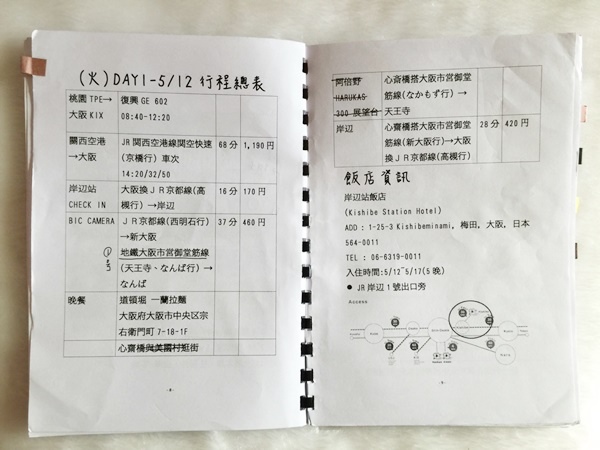 (火)DAY1-5/12 行程總表
桃園 TPE→ 復興 GE 602
大阪 KIX 08:40-12:20
關西空港 JR 関西空港線関空快速 68分 1,190円
→大阪 (京橋行) 車次
14:20/32/50
岸辺站 大阪換JR京都線(高 16分 170円
CHECK IN 槻行) →岸辺
BIC CAMERA JR京都線(西明石行) 37分 460円
→新大阪
地鐵大阪市営御堂筋線
(天王寺、なんば行) →
なんば
晚餐 道頓堀 一蘭拉麵
大阪府大阪市中央区宗
右衛門町 7-18-1F
心齋橋與美國村逛街
阿倍野 心斎橋搭大阪市営御堂
HARUKAS 筋線(なかもず行) →
300 展望台 天王寺
岸辺 心齋橋搭大阪市営御堂 28分 420円
筋線(新大阪行)→大阪
換JR京都線(高槻行)
飯店資訊
岸辺站飯店
(Kishibe Station Hotel)
ADD : 1-25-3 Kishibeminami, 梅田, 大阪, 日本
564-0011
TEL : 06-6319-0011
入住時間:5/12~5/17(5 晚)
● JR岸辺1號出口旁
Access